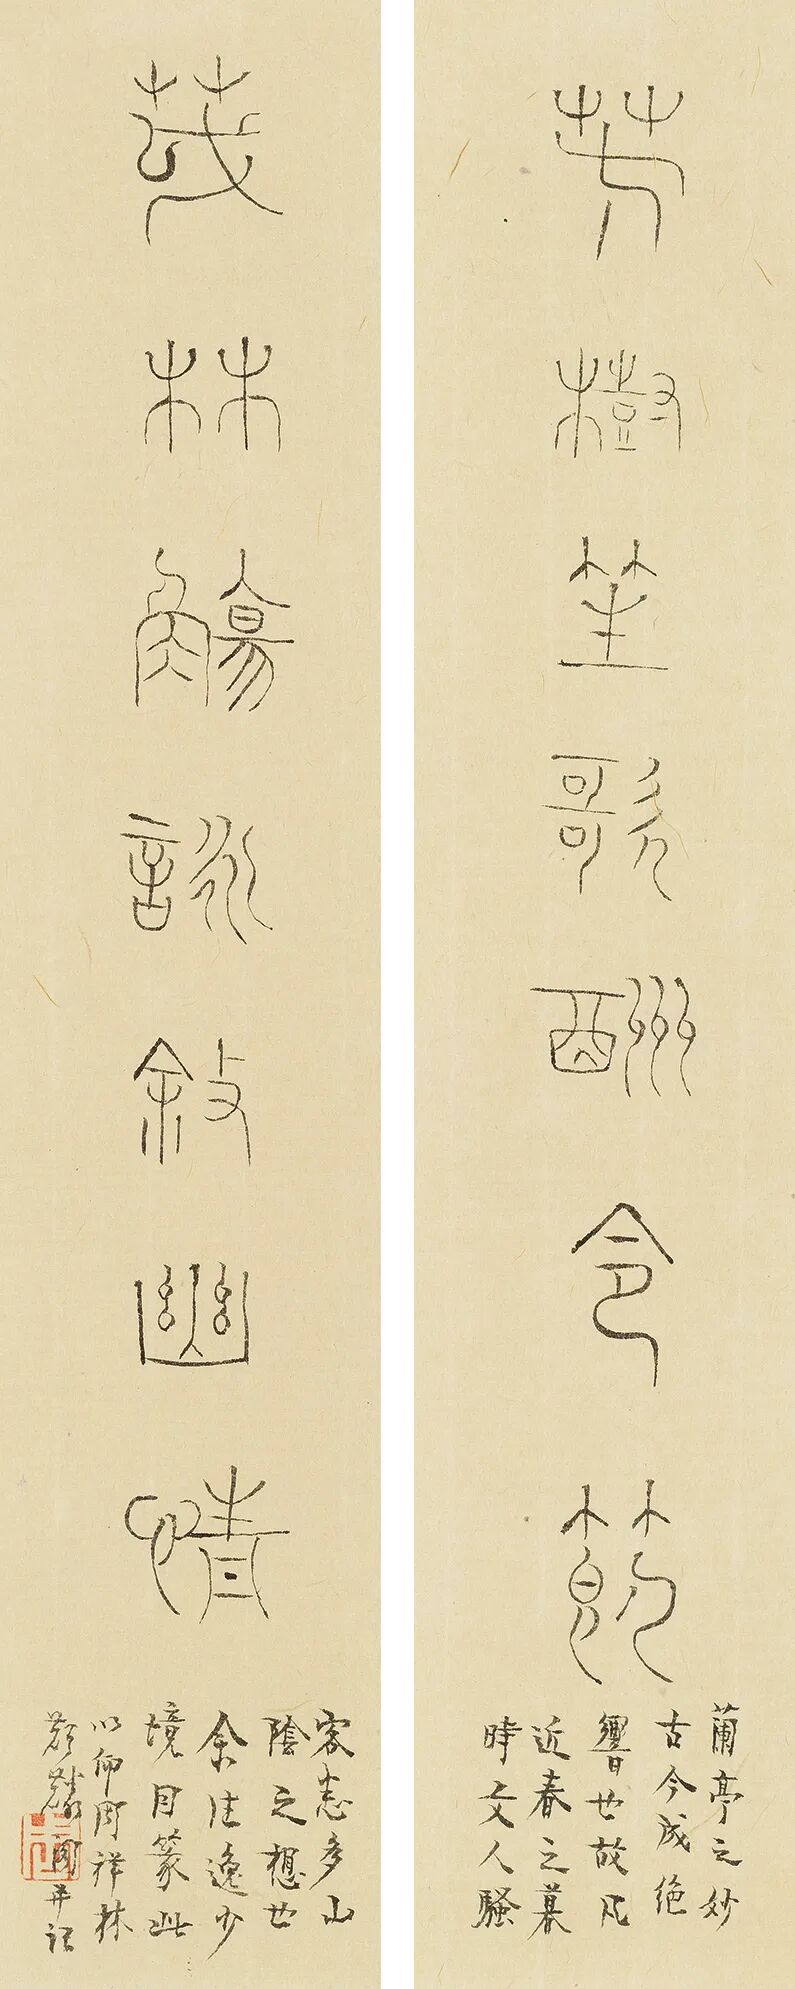 芳樹笙歌酬令節
蘭亭之妙
古今成絶
響也故凡
近春之暮
時文人騷
茂林觴詠敘幽情
客悉多山
陰之想也
余法逸少
境目篆此
以仰周祥林
并記